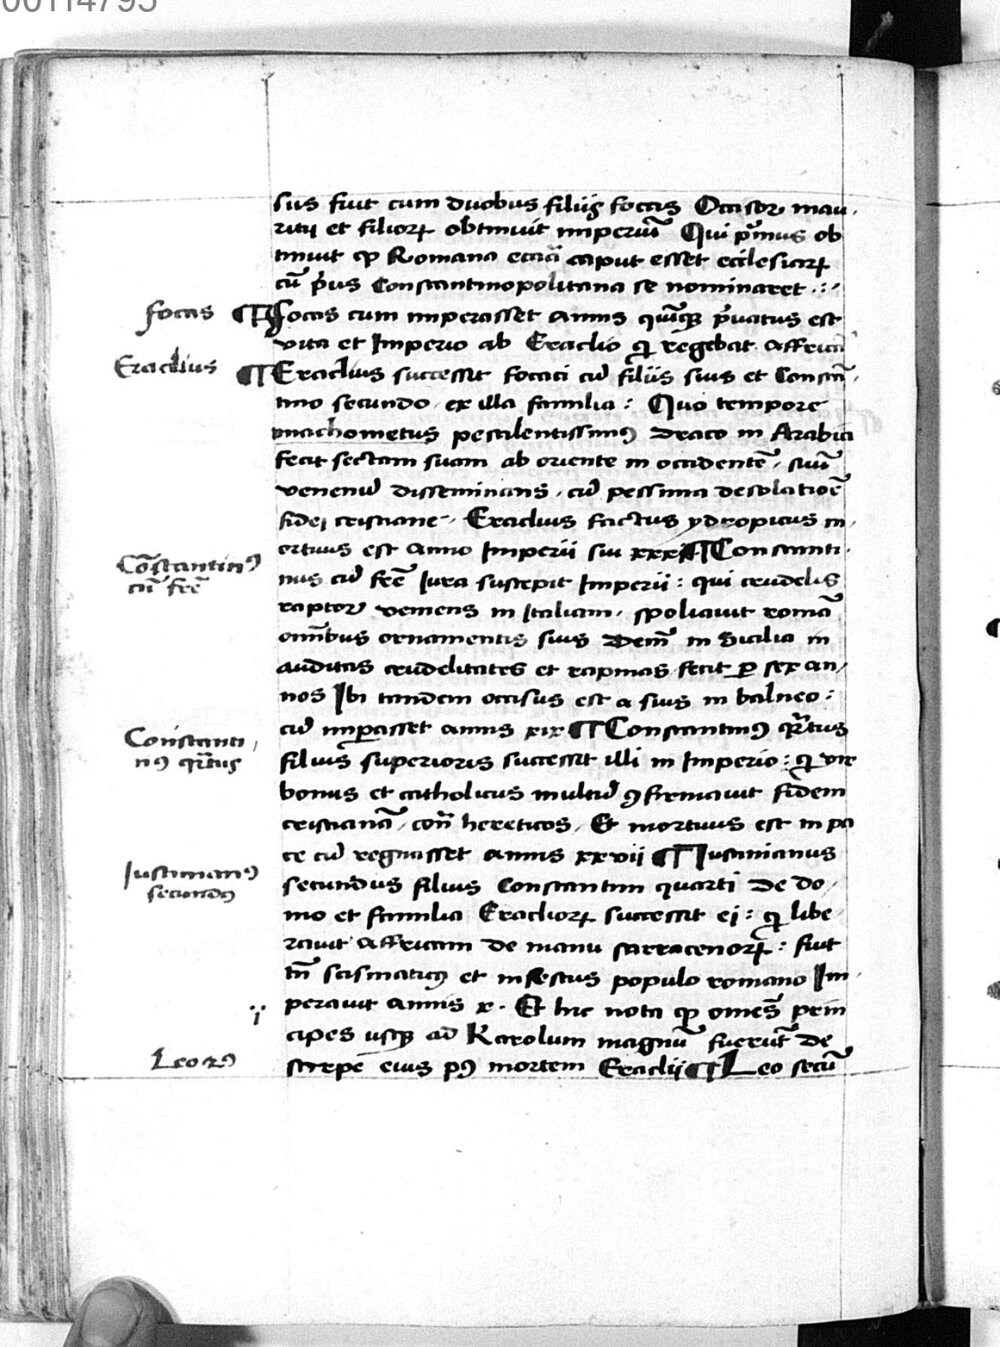 00114795
sus fuit cum duobus filiis foccas Occisor mau
ritij et filiorꝝ obtinuit imperiū Qui pͥmus ob
tinuit ꝙ Romana ecciā caput esset ecclesiarꝝ
cū pͥus Constantinopolitana se nominaret
focas
¶ focas cum imperasset annis quīqꝫ pͥuatus est
vita et Imperio ab Eraclio qͥ regebat affricā
Eraclius
¶ Eraclius successit focaci cū filiis suis et Constā
tino secundo ex illa familia : Quo tempore
machometus pestilentissimꝰ draco in Arabia
fecit sectam suam ab oriente in occidentē suū
venenū disseminans cū pessima desolatiōe
fidei cristiane Eraclius factus ydropicus m
ortuus est anno Imperii sui xxxj ¶ Constanti
Cōstantinꝰ
cū fr̄e
nus cū fr̄e Iura suscepit Imperii : qui crudelis
raptor veniens in Italiam spoliauit romā
omībus ornamentis suis dem̄ in Sicilia in
auditas crudelitates et rapinas fecit ꝑ sex an
nos Ibi tandem occisus est a suis in balneo :
cū imꝑasset annis xix ¶ Constantinꝰ qͣrtus
Constanti
nꝰ qͣrtus
filius superioris successit illi in Imperio : qͥ vir
bonus et catholicus multū ꝯfirmauit fidem
cristianā con̄ hereticos Et mortuus est in pa
ce cū regnasset annis xxvii ¶ Iustinianus
Iustinianꝰ
secundꝰ
secundus filius Constantini quarti de do
mo et familia Eracliorꝝ successit ei : qͥ libe
rauit affricam de manu sarracenorꝝ : fuit
tn̄ scismaticꝰ et infestus populo romano Im
perauit annis x Et hic nota ꝙ omēs prin
cipes usqꝫ ad Karolum magnū fuerūt de
Leo 2ꝰ
stirpe eius pꝰ mortem Eraclij ¶ Leo secū